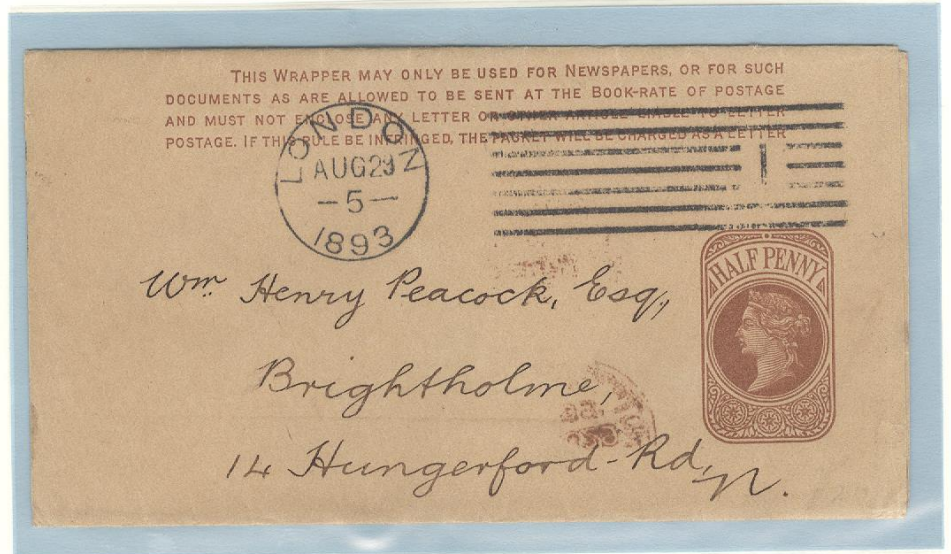 THIS WRAPPER MAY ONLY BE USED FOR NEWSPAPERS, OR FOR SUCH
DOCUMENTS AS ARE ALLOWED TO BE SENT AT THE BOOK-RATE OF POSTAGE
AND MUST NOT ENCLOSE ANY LETTER OR OTHER ARTICLE LIABLE TO LETTER
POSTAGE. IF THIS RULE BE INFRINGED, THE PACKET WILL BE CHARGED AS A LETTER
LONDON
AUG 29
-5-
1893
1
HALF PENNY
Wm Henry Peacock, Esq,
Brightholme,
14 Hungerford-Rd,
N.